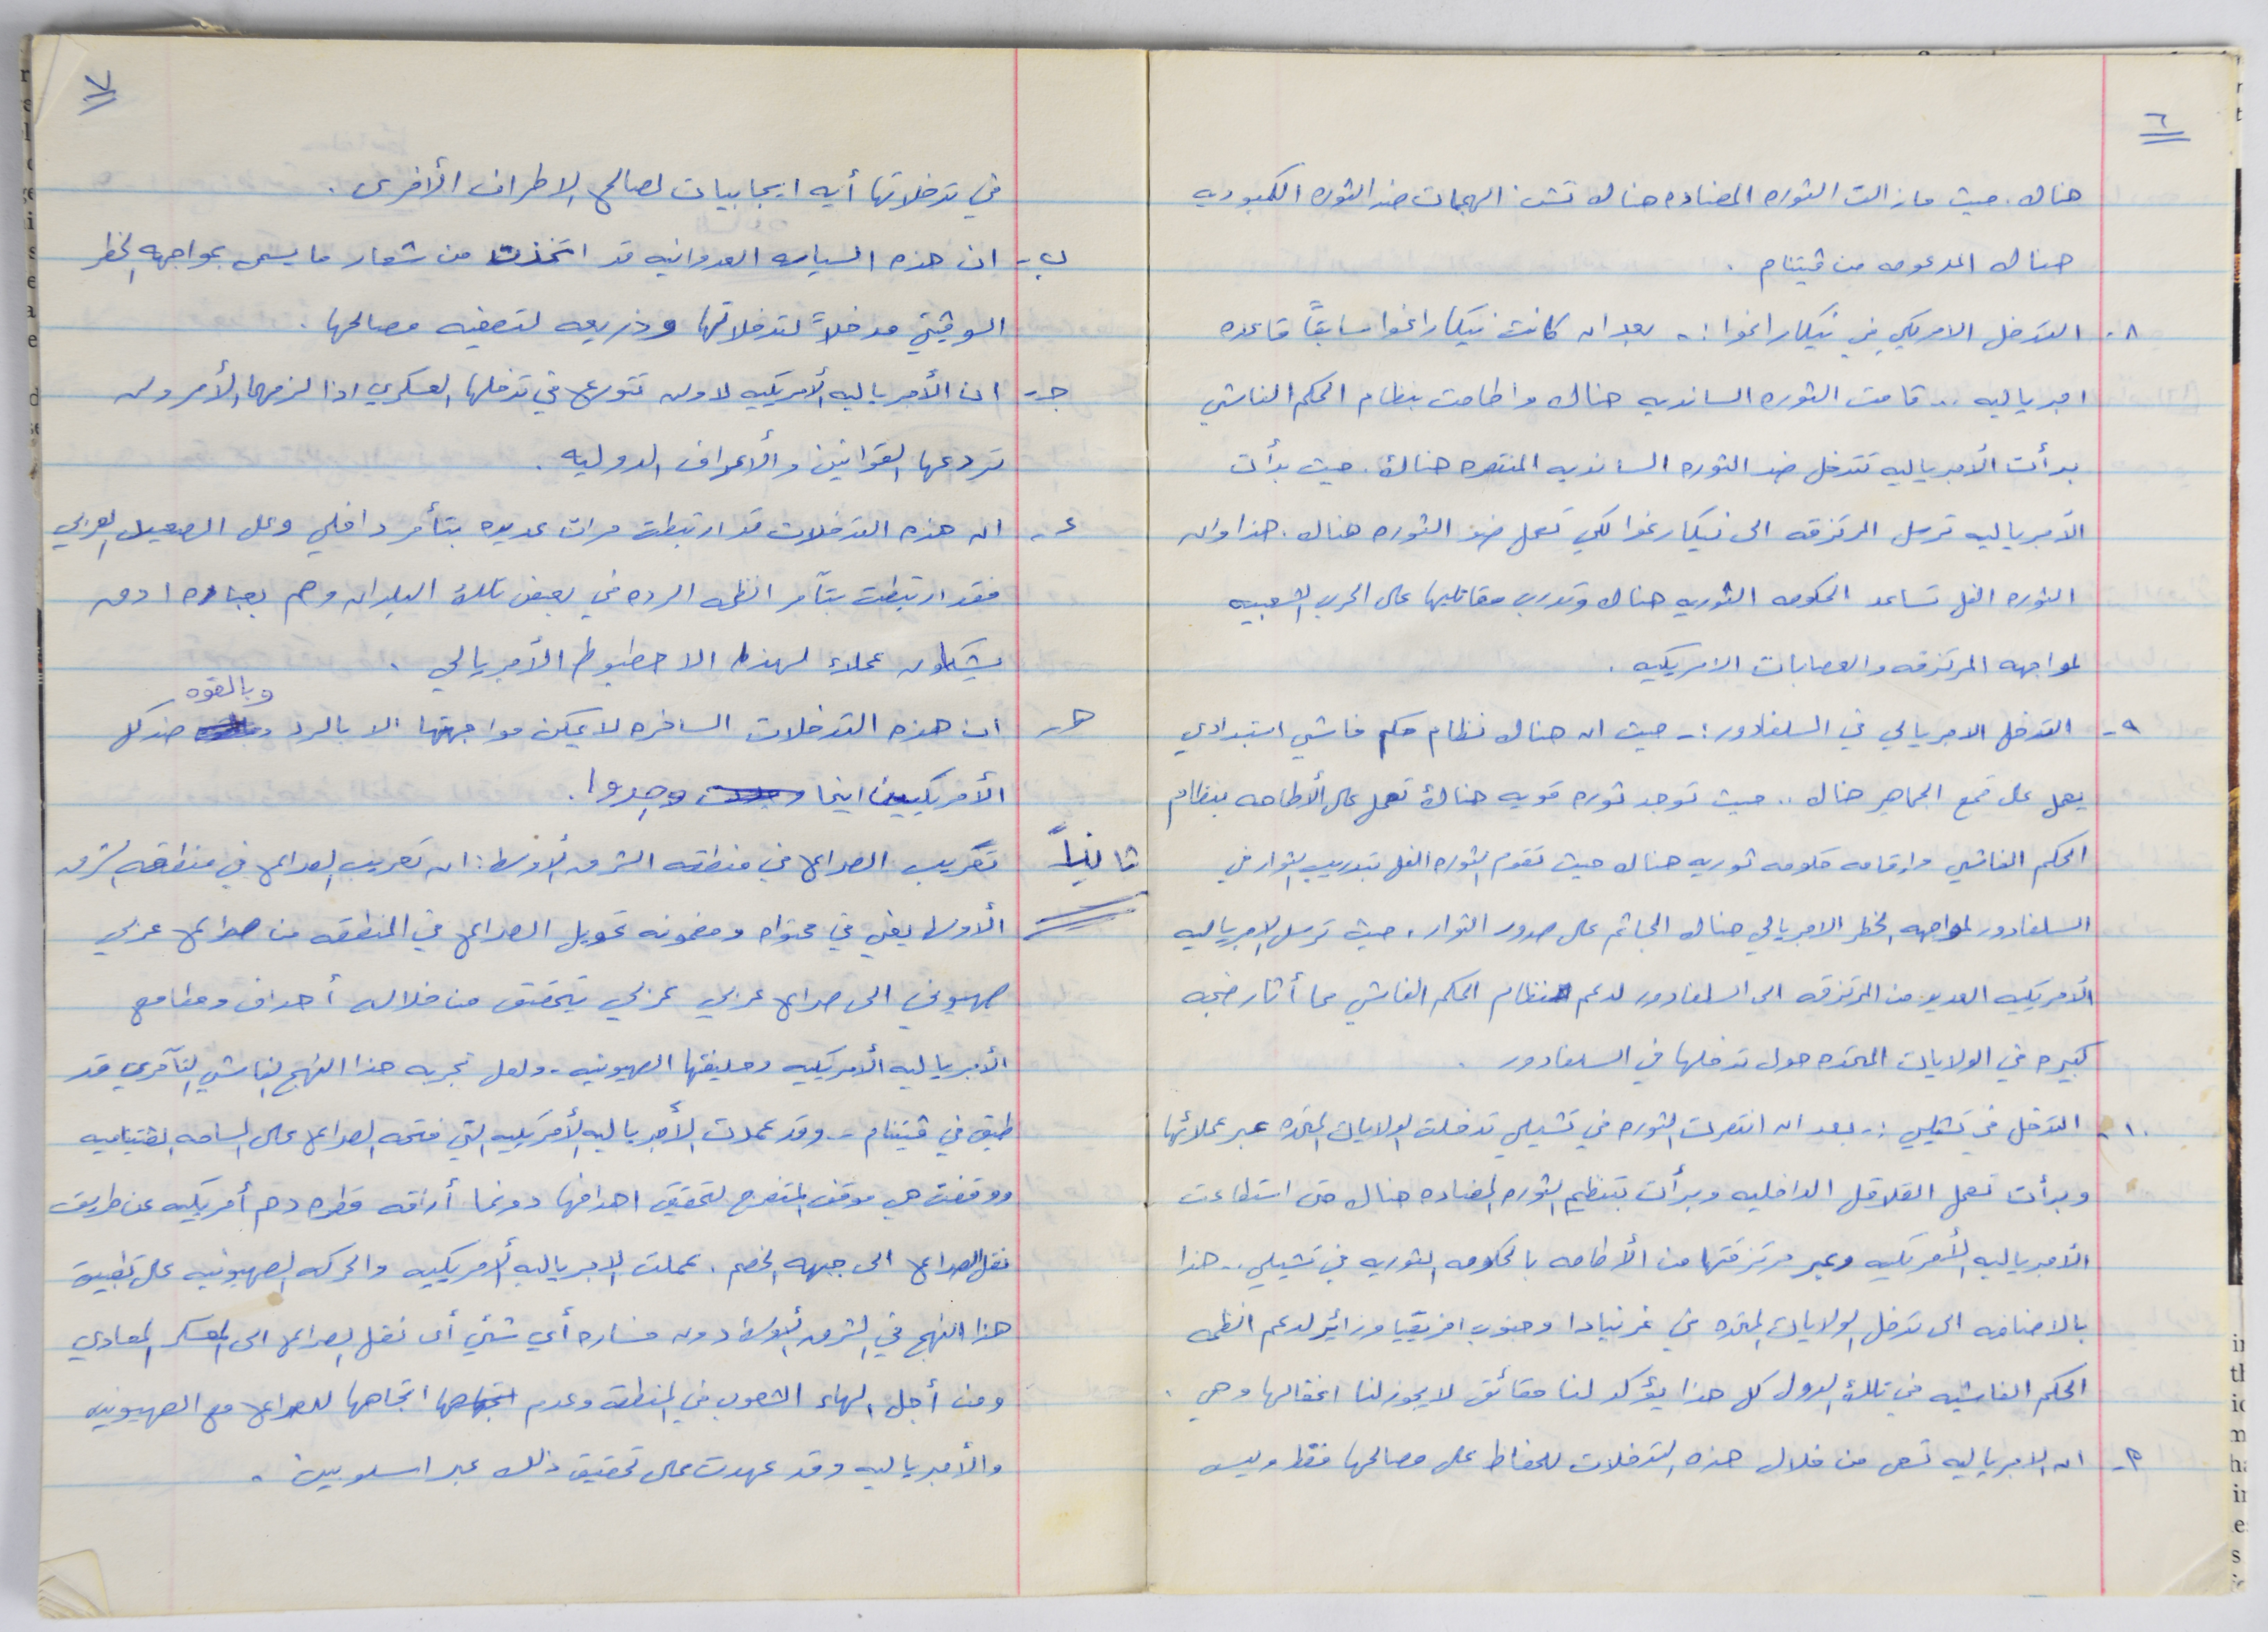 ٦
هناك. حيث مازالت الثوره المضاده هناك تشن الهجمات ضد الثوره الكمبوديه
هناك المدعومه من ڤيتنام .
٨- التدخل الامريكي في نيكاراغوا :- بعد ان كانت نيكاراغوا سابقاً قاعده
امبرياليه .. قامت الثوره السانديه هناك واطاحت بنظام الحكم الفاشي
بدأت الأمبرياليه تتدخل ضد الثوره السانديه المنتصره هناك. حيث بدأت
الأمبرياليه ترسل المرتزقه الى نيكارغوا لكي تعمل ضد الثوره هناك. هذا وان
الثوره الفل تساعد الحكومه الثوريه هناك وتدرب مقاتليها على الحرب الشعبيه
لمواجهه المرتزقه والعصابات الامريكيه .
٩- التدخل الامبريالي في السلفادور :- حيث ان هناك نظام حكم فاشي استبدادي
يعمل على قمع الجماهير هناك .. حيث توجد ثوره قويه هناك تعمل على الأطاحه بنظام
الحكم الفاشي واقامه حكومه ثوريه هناك حيث تقوم الثوره الفل بتدريب الثوار في
السلفادور لمواجهه الخطر الامبريالي هناك الجاثم على صدور الثوار. حيث ترسل الامبرياليه
الأمريكيه العديد من المرتزقه الى السلفادور لدعم نظام الحكم الفاشي مما أثار ضجه
كبيره في الولايات المتحده حول تدخلها في السلفادور .
١٠- التدخل في تشيلي :- بعد ان انتصرت الثوره في تشيلي تدخلت الولايات المتحده عبر عملائها
وبدأت تعمل القلاقل الداخليه وبدأت بتنظيم الثوره المضاده هناك حتى استطاعت
الأمبرياليه الأمريكيه وعبر مرتزقتها من الأطاحه بالحكومه الثوريه في تشيلي .. هذا
بالاضافه الى تدخل الولايات المتحده في غرنيادا وجنوب افريقيا وزائير لدعم انظمه
الحكم الفاشيه في تلك الدول كل هذا يؤكد لنا حقائق لا يجوز لنا اغفالها وهي .
٢- ان الامبرياليه تسعى من خلال هذه التدخلات للحفاظ على مصالحها فقط وليس
٧
في تدخلاتها أيه ايجابيات لصالح الاطراف الأخرى .
ب- ان هذه السياسه العدوانيه قد اتخذت من شعار ما يسمى بمواجهه الخطر
السوڤيتي مدخلاً لتدخلاتها وذريعه لتصفيه مصالحها .
جـ- ان الأمبرياليه الأمريكيه لا ولن تتورع في تدخلها العسكري اذا لزمها الأمر ولن
تردعها القوانين والأعراف الدوليه .
ء- ان هذه التدخلات قد ارتبطت مرات عديده بتأمر داخلي وعلى الصعيد العربي
فقد ارتبطت بتآمر انظمه الرده في بعض تلك البلدان وهم بعباره ادق
يشكلون عملاء لهذا الاخطبوط الأمبريالي .
هـ- ان هذه التدخلات السافره لا يمكن مواجهتها الا بالرد وبالقوه ضد كل
الأمريكيين اينما وجدوا.
ثانياً تعريب الصراع في منطقه الشرق الأوسط : ان تعريب الصراع في منطقه الشرق
الأوسط يعني في محتواه ومضمونه تحويل الصراع في المنطقه من صراع عربي
صهيوني الى صراع عربي عربي يتحقق من خلاله أهداف ومطامع
الأمبرياليه الأمريكيه وحليفتها الصهيونيه - ولعل تجربه هذا النهج الفاشي التآمري قد
طبق في ڤيتنام - وقد عملت الأمبرياليه الأمريكيه التي فتحه الصراع على الساحه الفيتناميه
ووقفت هي موقف المتفرج لتحقيق اهدافها دونما أراقه قطره دم أمريكيه عن طريق
نقل الصراع الى جبهه الخصم . عملت الامبرياليه الأمريكيه والحركه الصهيونيه على تطبيق
هذا النهج في الشرق الأوسط دون خساره أي شئي أى نقل الصراع الى المعسكر المعادي
ومن أجل الهاء الشعوب في المنطقه وعدم اتجاهها للصراع مع الصهيونيه
والأمبرياليه وقد عهدت على تحقيق ذلك عبر اسلوبين .